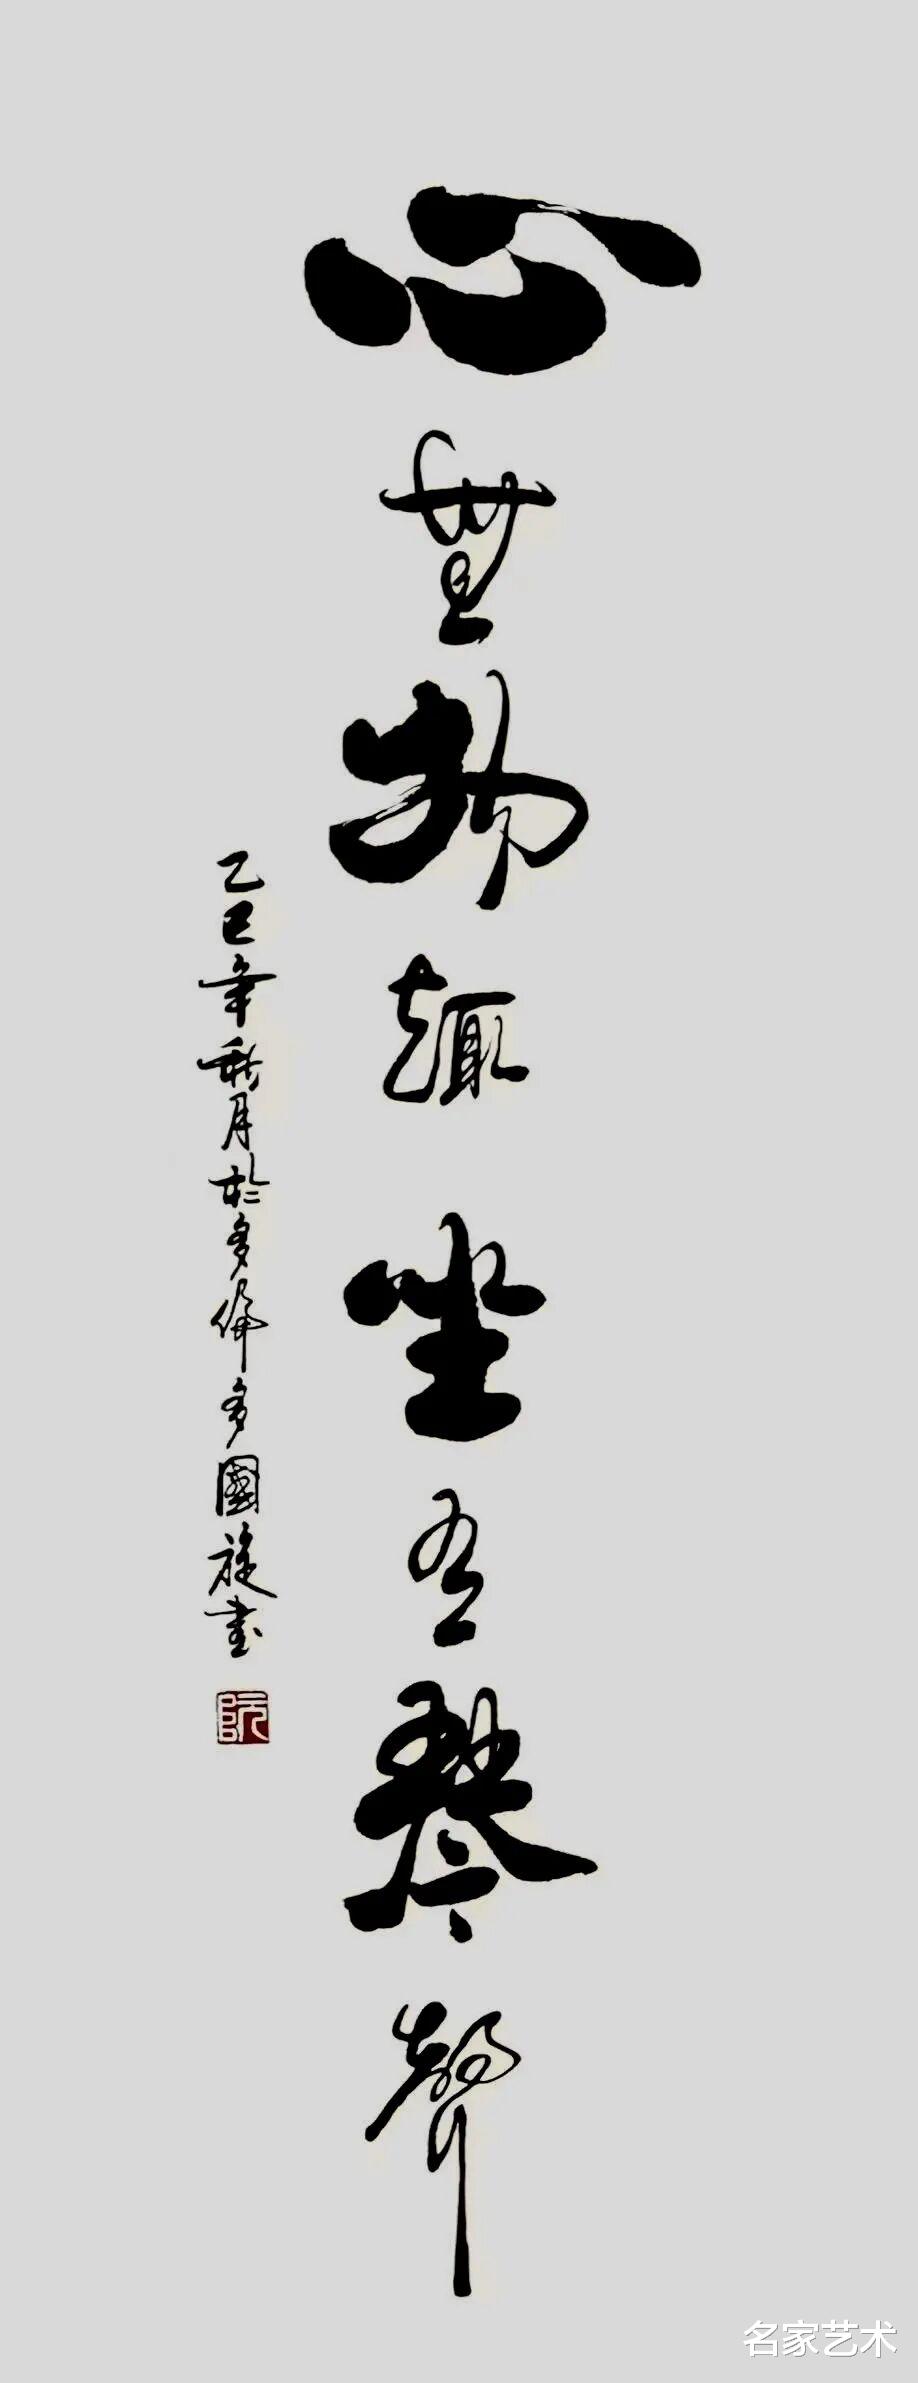 心無物趣坐有琴聲
乙巳年秋月於多倫多國旋書
阮
名家艺术